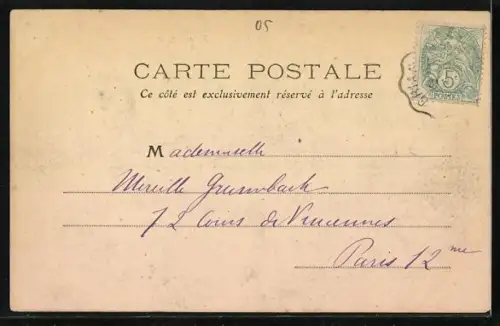 05
CARTE POSTALE
Ce côté est exclusivement réservé à l'adresse
Mademoiselle
Mereille Grumbach
72 Cours de Vincennes
Paris 12me
5c
POSTES